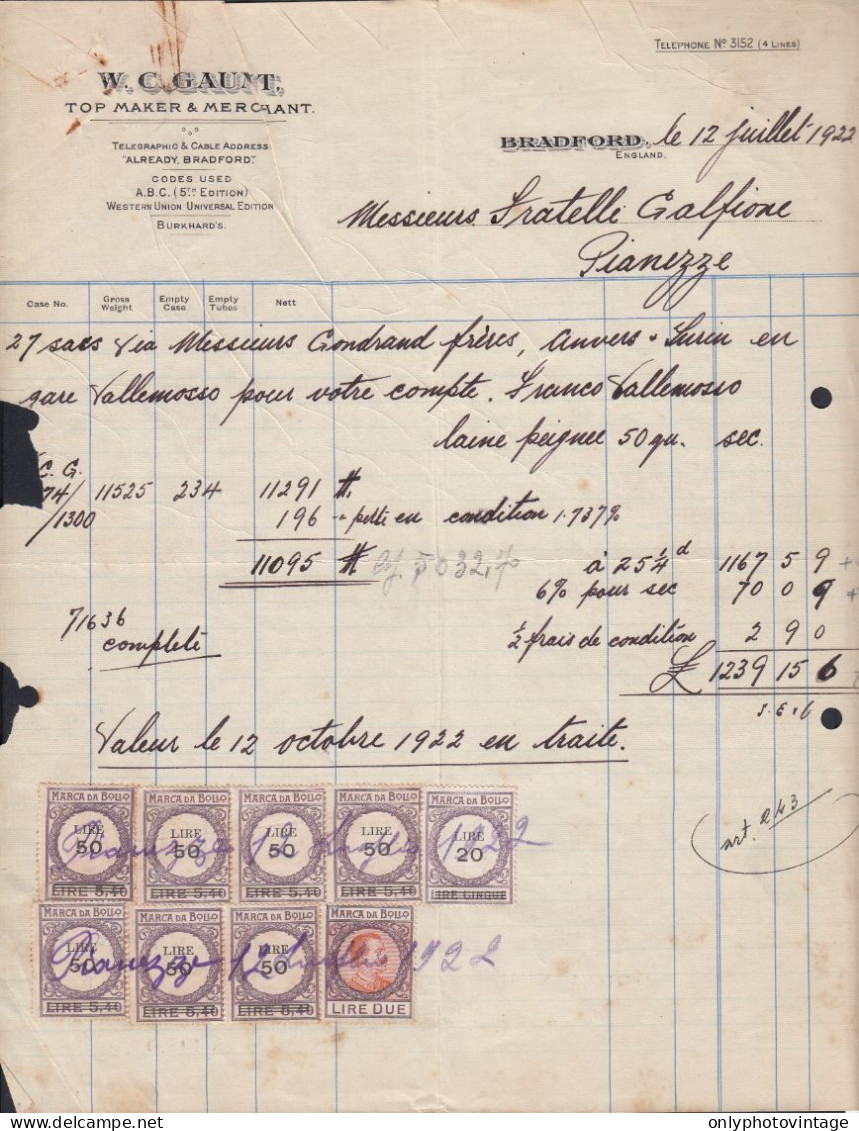 TELEPHONE Nº 3152 (4 LINES)
W. C. GAUNT,
TOP MAKER & MERCHANT.
TELEGRAPHIC & CABLE ADDRESS
"ALREADY, BRADFORD."
CODES USED
A.B.C. (5TH EDITION)
WESTERN UNION UNIVERSAL EDITION
BURKHARD'S.
BRADFORD, le 12 juillet 1922
ENGLAND.
Messieurs Fratelli Galfione
Pianezze
Case No. Gross Weight Empty Case Empty Tubes Nett
27 sacs via Messieurs Gondrand frères, Anvers - Turin en
gare Vallemosso pour votre compte. Franco Vallemosso
laine peignee 50 qu. sec.
C. G.
74/ 11525 234 11291 #.
/1300 196 " perte en condition 1.737%
11095 # à 25 1/4 d 1167 5 9
6% pour sec 70 0 9
71636 ½ frais de condition 2 9 0
completé £ 1239 15 6
Valeur le 12 octobre 1922 en traite.
art. 243
MARCA DA BOLLO MARCA DA BOLLO MARCA DA BOLLO MARCA DA BOLLO MARCA DA BOLLO
LIRE 50 LIRE 50 LIRE 50 LIRE 50 LIRE 20
Pianezze 12 Luglio 1922
LIRE 5,40 LIRE 5,40 LIRE 5,40 LIRE 5,40 IRE CINQUE
MARCA DA BOLLO MARCA DA BOLLO MARCA DA BOLLO MARCA DA BOLLO
LIRE 50 LIRE 50 LIRE 50
Pianezze 12 Luglio 1922
LIRE 5,40 LIRE 5,40 LIRE 5,40 LIRE DUE
onlyphotovintage